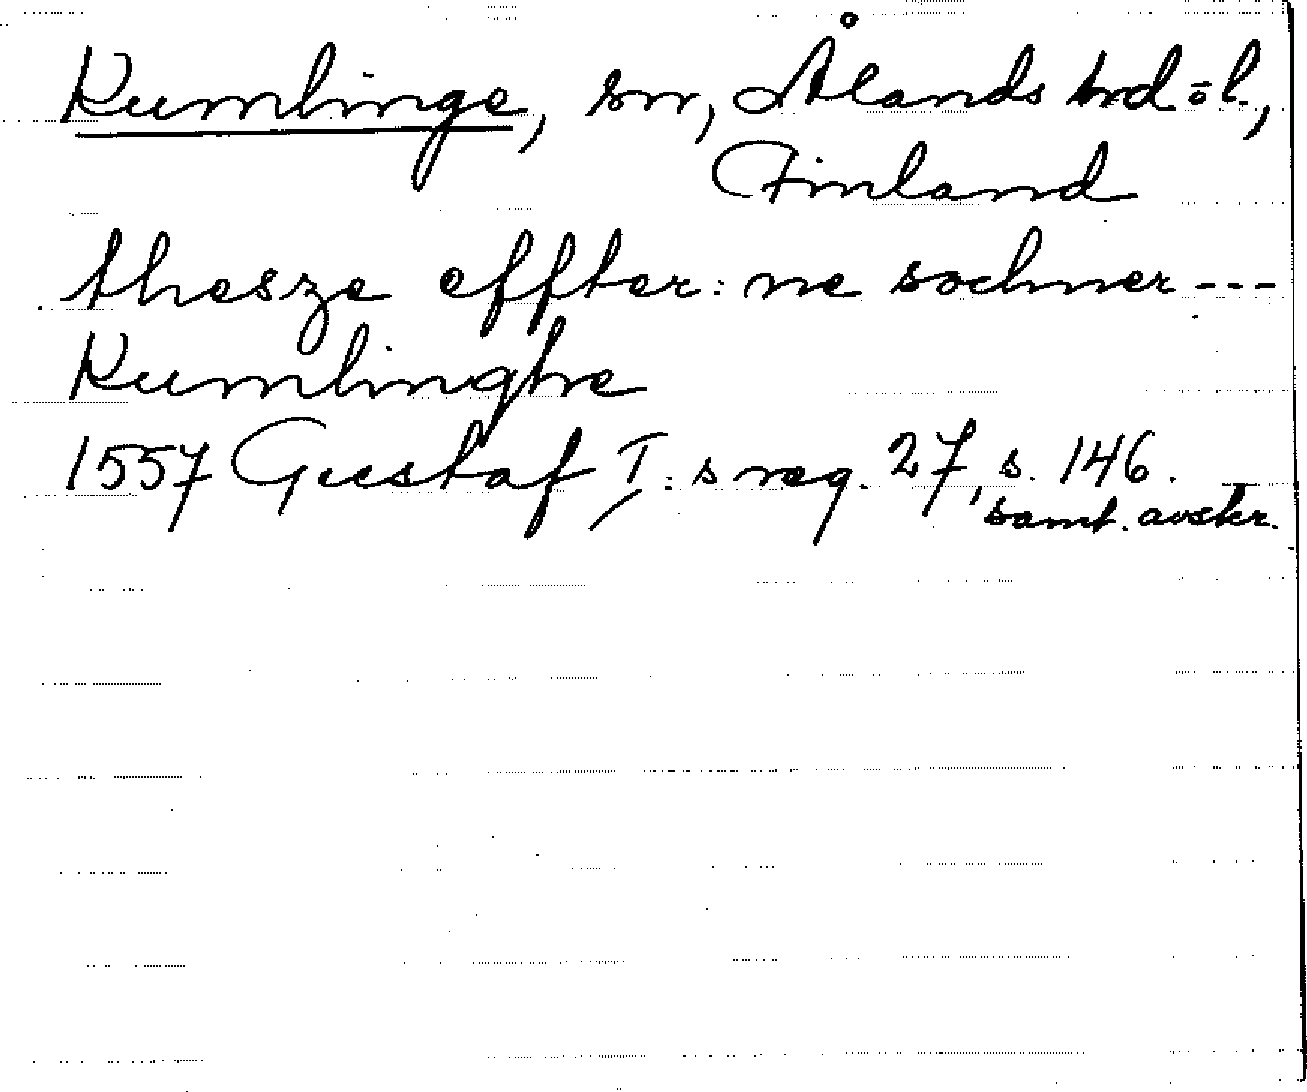 Kumlinge, sn, Ålands hd o l.,
Finland
thesze effter: ne sochner ---
Kumlinghe
1557 Gustaf I: s reg. 27, s. 146.
samt. avskr.